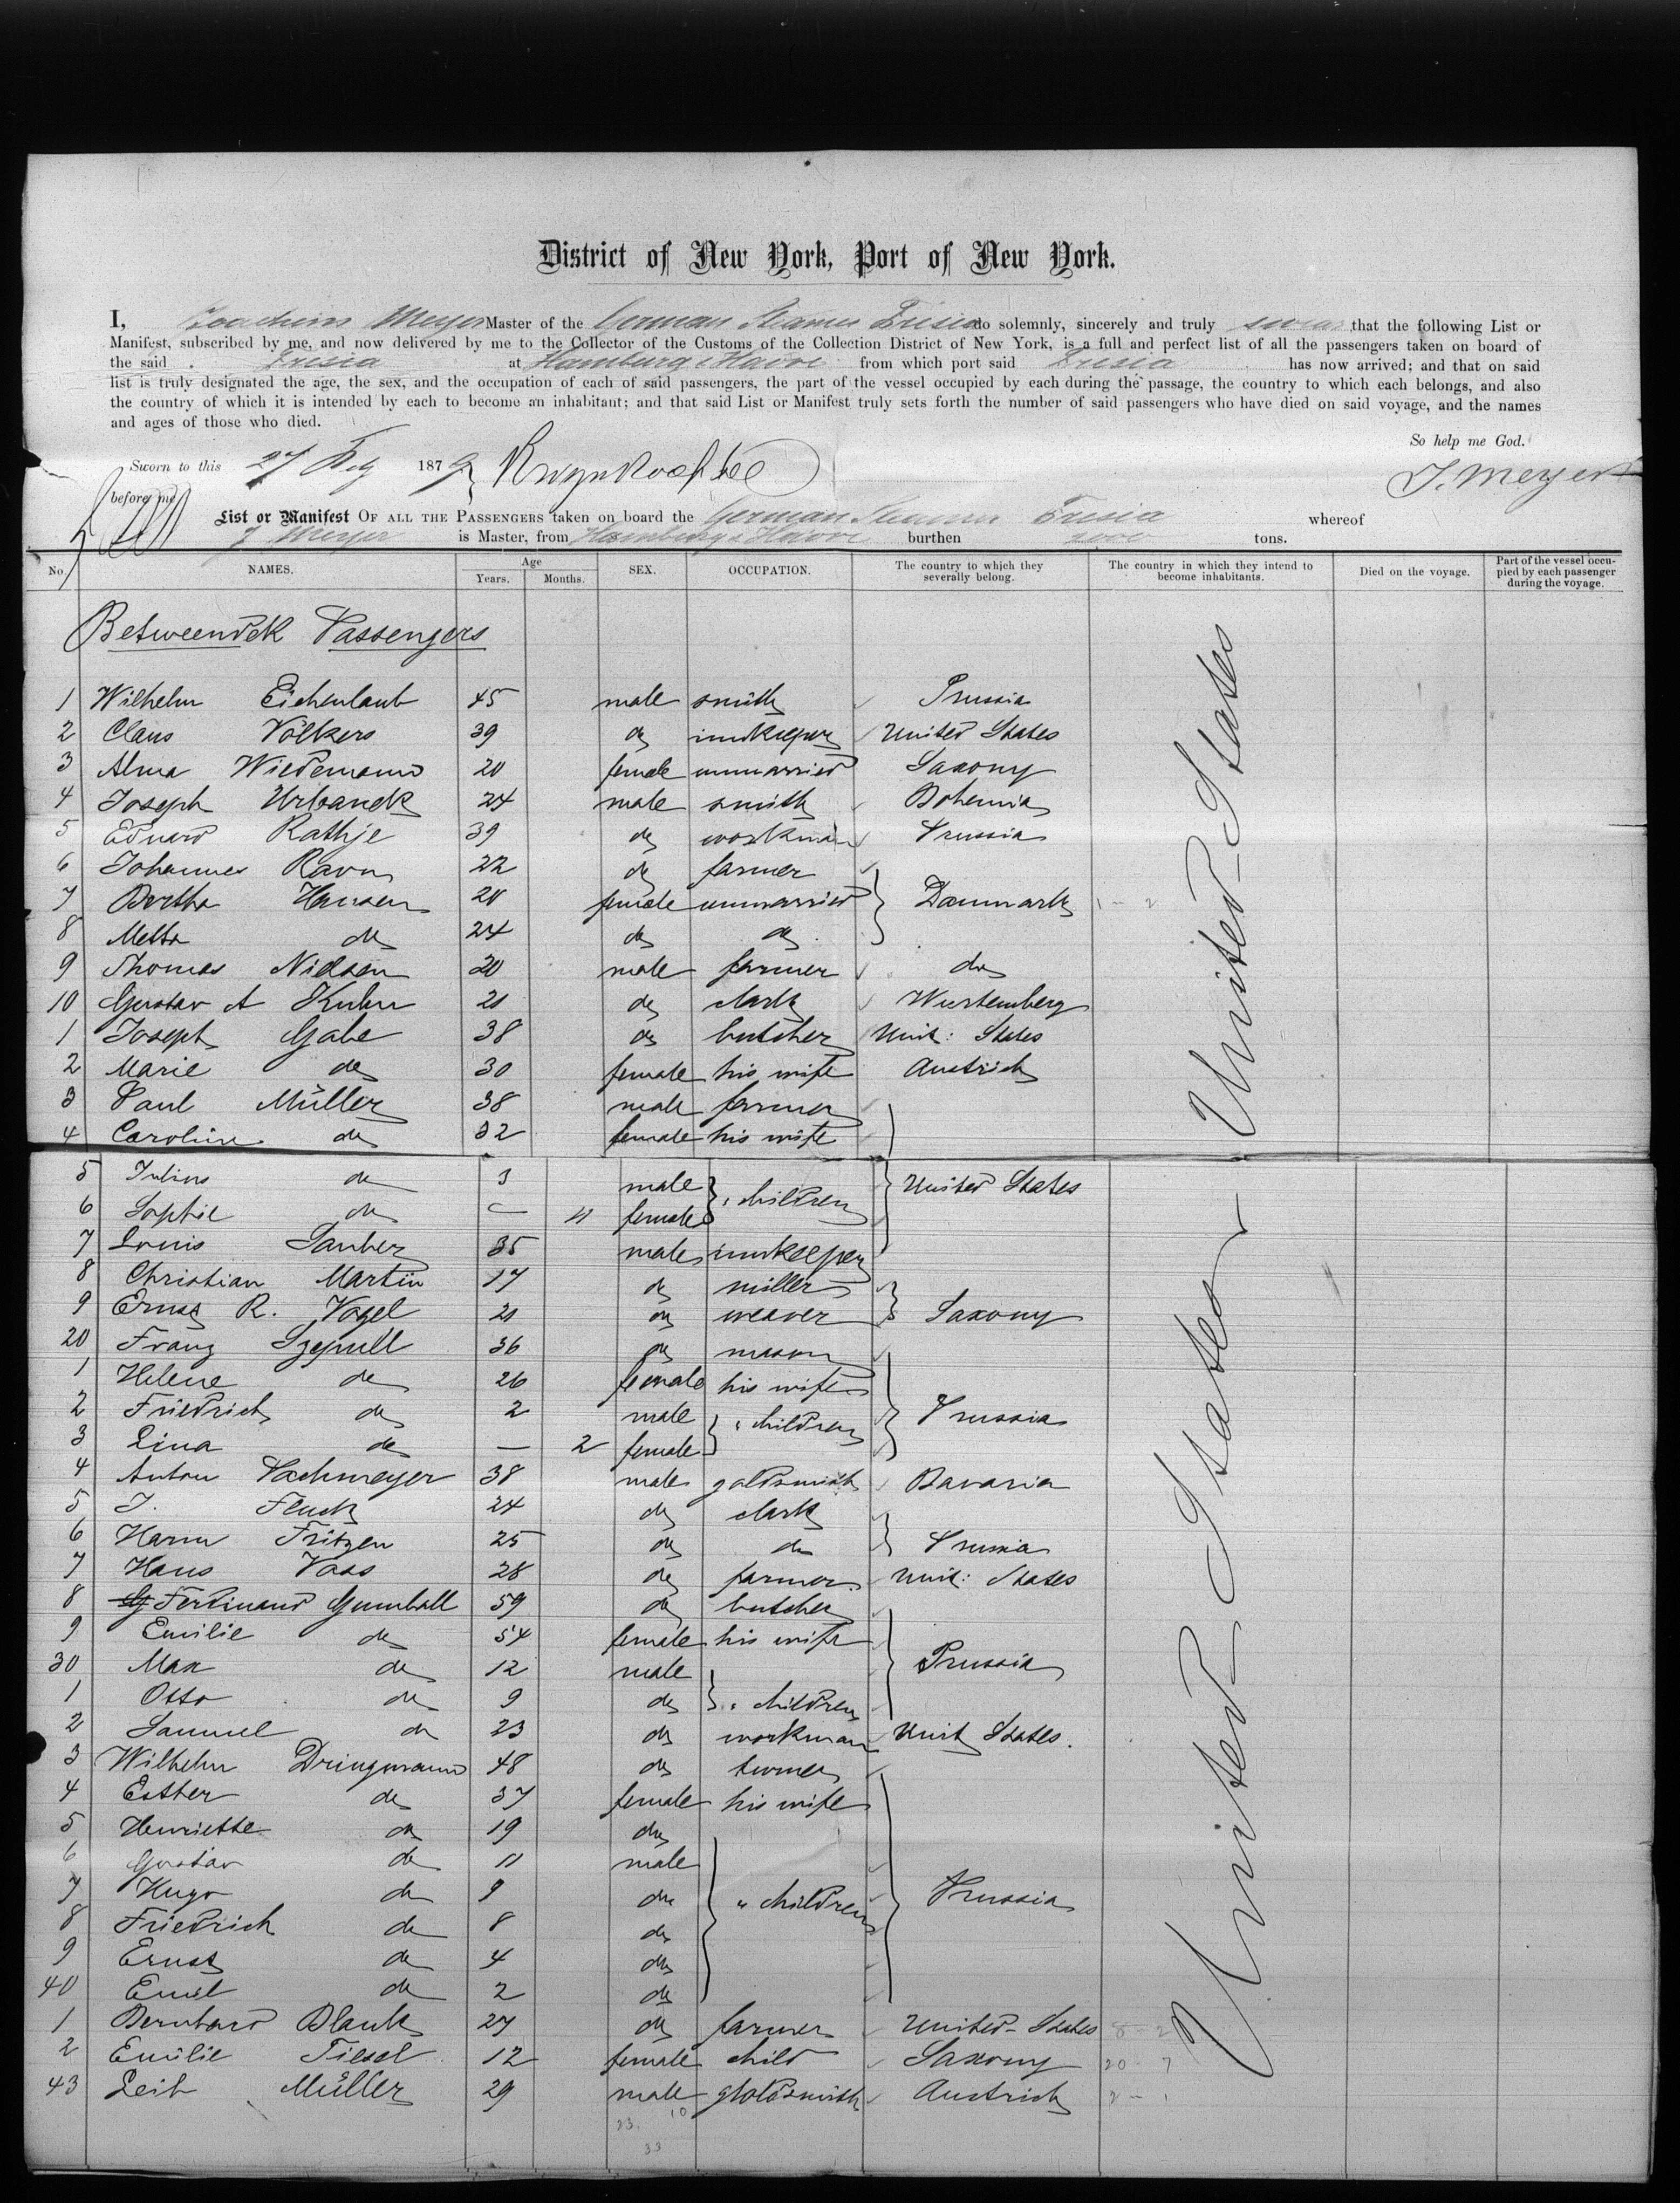 District of New York, Port of New York.
I, Joachim Meyer Master of the German Steamer Frisia do solemnly, sincerely and truly swear that the following List or
Manifest, subscribed by me, and now delivered by me to the Collector of the Customs of the Collection District of New York, is a full and perfect list of all the passengers taken on board of
the said Frisia at Hamburg & Havre from which port said Frisia has now arrived; and that on said
list is truly designated the age, the sex, and the occupation of each of said passengers, the part of the vessel occupied by each during the passage, the country to which each belongs, and also
the country of which it is intended by each to become an inhabitant; and that said List or Manifest truly sets forth the number of said passengers who have died on said voyage, and the names
and ages of those who died.
So help me God.
Sworn to this 27 Feb 1879
J. Meyer
before me
List or Manifest OF ALL THE PASSENGERS taken on board the German Steamer Frisia whereof
J Meyer is Master, from Hamburg & Havre burthen 2000 tons.
No. NAMES. Age Years. Months. SEX. OCCUPATION. The country to which they severally belong. The country in which they intend to become inhabitants. Died on the voyage. Part of the vessel occupied by each passenger during the voyage.
Betweendek Passengers
United States
1 Wilhelm Eichenlaub 45 male smith Prussia
2 Claus Völkers 39 do innkeeper United States
3 Alma Wiedemann 20 female unmarried Saxony
4 Joseph Urbanek 24 male smith Bohemia
5 Eduard Rathje 39 do workman Prussia
6 Johannes Ravn 22 do farmer
7 Bertha Hansen 20 female unmarried Danmark
8 Metta do 24 do do
9 Thomas Nielsen 20 male farmer do
10 Gustav A Kuhn 21 do clark Wurtemberg
1 Joseph Gabe 38 do butcher Unit: States
2 Marie do 30 female his wife Austrich
3 Paul Müller 38 male farmer
4 Caroline do 32 female his wife
5 Julius do 3 male " children United States
6 Sophie do — 11 female
7 Louis Sauber 35 male innkeeper
8 Christian Martin 17 do miller
9 Ernst R. Vogel 21 do weaver Saxony
20 Franz Szepull 36 do mason
1 Helene do 26 female his wife
2 Friedrich do 2 male " children Prussia
3 Lina do — 2 female
4 Anton Pachmeyer 38 male goldsmith Bavaria
5 J. Fluck 24 do clark
6 Harm Fritzen 25 do do Prussia
7 Hans Voss 28 do farmer Unit: States
8 Ferdinand Gumball 59 do butcher
9 Emilie do 54 female his wife
30 Max do 12 male Prussia
1 Otto do 9 do " children
2 Samuel do 23 do workman Unit States.
3 Wilhelm Dringmann 48 do turner
4 Esther do 37 female his wife
5 Henriette do 19 do
6 Gustav do 11 male
7 Hugo do 9 do " children Prussia
8 Friedrich do 8 do
9 Ernst do 4 do
40 Emil do 2 do
1 Bernhard Blank 27 do farmer United States
2 Emilie Tiesel 12 female child Saxony 20 - 7
43 Leib Müller 29 male gholdsmith Austrich 2 - 1
United States
23. 10
33